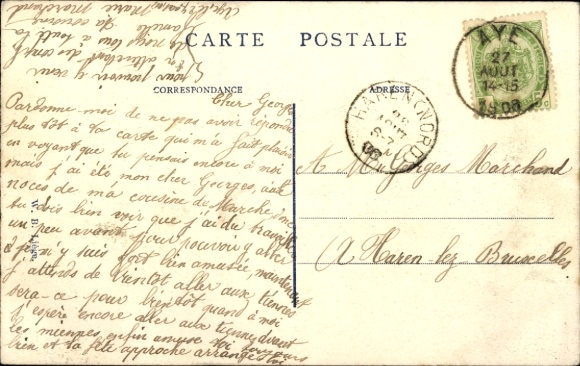 CARTE POSTALE
CORRESPONDANCE
ADRESSE
Cher Georges
Pardonne-moi de ne pas avoir répondre
plus tôt à ta carte qui m'a fait plaisir
en voyant que tu pensais encore à moi
mais j'ai été mon cher Georges, aux
noces de ma cousine de Marche
tu dois bien voir que j'ai du travailler
un peu avant pour pouvoir y aller
je m'y suis fort bien amusée, maintenant
j'attends de bientôt aller aux tiennes
sera-ce pour bientôt quand à moi
j'espère encore aller aux tiennes avant
les miennes, enfin amuse toi toujours
bien et ta fête approche arranges toi
pour pouvoir y venir
En attendant
nous tous à toute la
famille
Ta cousine
Marie
Marchant
AYE
27
AOUT
14-15
1908
HAREN (NORD)
A Mr Georges Marchand
(à Haren-lez-Bruxelles
W. B. Liège